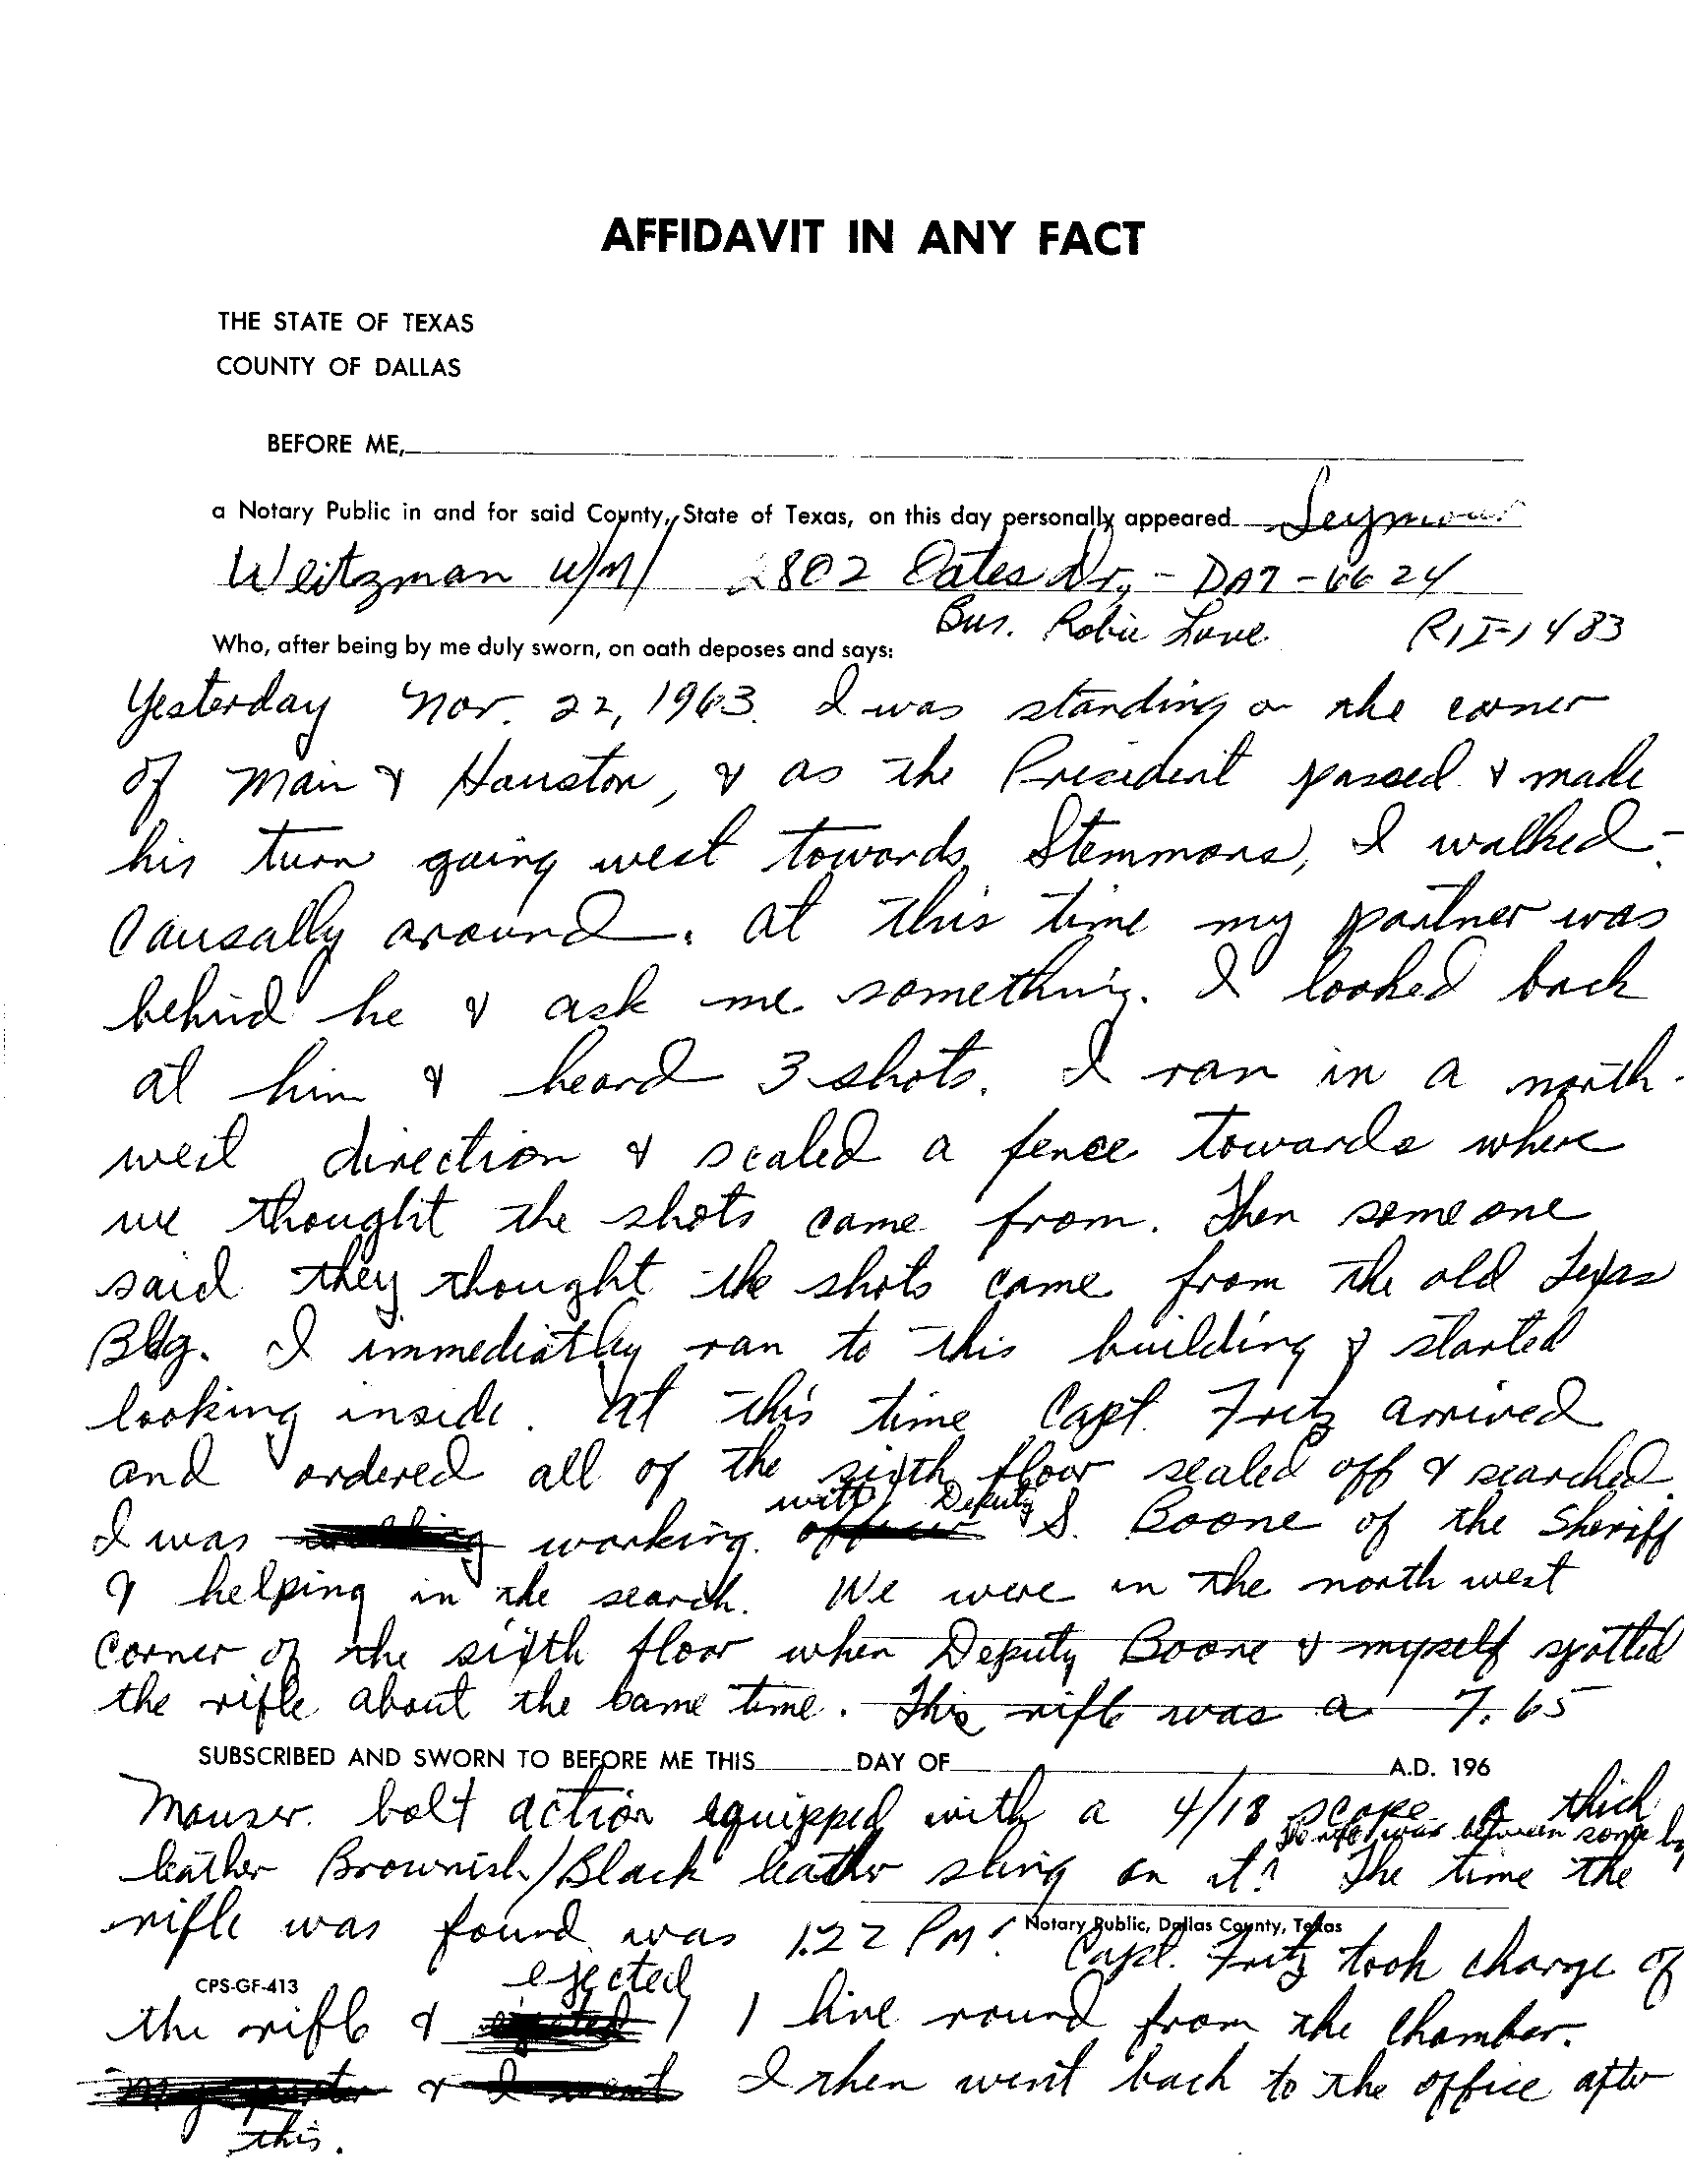 AFFIDAVIT IN ANY FACT
THE STATE OF TEXAS
COUNTY OF DALLAS
BEFORE ME,
a Notary Public in and for said County, State of Texas, on this day personally appeared Seymour
Weitzman w/m 2802 Oates Dr, - DA7-6624
Bus. Robie Love RI I-1483
Who, after being by me duly sworn, on oath deposes and says:
Yesterday Nov. 22, 1963. I was standing on the corner
of Main & Houston, & as the President passed & made
his turn going west towards Stemmons, I walked
causally around. at this time my partner was
behind he & ask me something. I looked back
at him & heard 3 shots. I ran in a north-
west direction & scaled a fence towards where
we thought the shots came from. Then someone
said they thought the shots came from the old Texas
Bldg. I immediatley ran to this building & started
looking inside. At this time Capt. Fritz arrived
and ordered all of the sixth floor sealed off & searched.
with Deputy
I was working officer S. Boone of the Sheriff
& helping in the search. We were in the north west
corner of the sixth floor when Deputy Boone & myself spotted
the rifle about the same time. This rifle was a 7.65
SUBSCRIBED AND SWORN TO BEFORE ME THIS DAY OF A.D. 196
Mauser bolt action equipped with a 4/18 scope a thick
The rifle was between some
leather Brownish/Black leather sling on it. The time the
rifle was found was 1:22 PM. Notary Public, Dallas County, Texas
Capt. Fritz took charge of
CPS-GF-413
ejected
the rifle & ejected 1 live round from the chamber.
& I went I then went back to the office after
this.